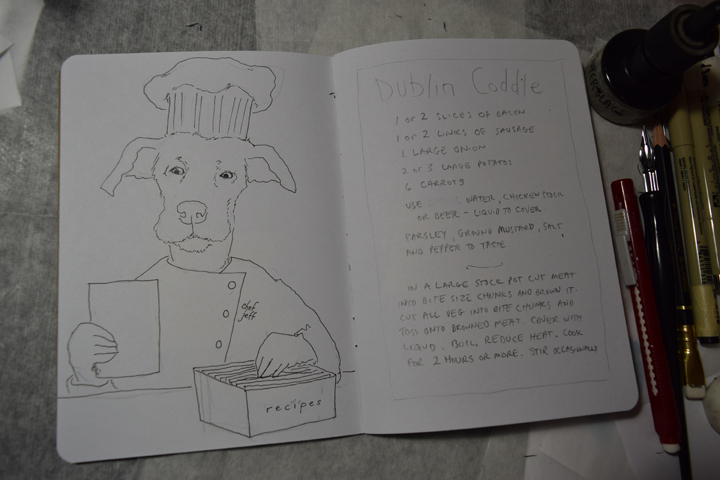 chef
jeff
recipes
Dublin Coddle
1 OR 2 SLICES OF BACON
1 OR 2 LINKS OF SAUSAGE
1 LARGE ONION
2 OR 3 LARGE POTATOS
6 CARROTS
USE WATER, CHICKEN STOCK
OR BEER - LIQUID TO COVER
PARSLEY, GROUND MUSTARD, SALT
AND PEPPER TO TASTE
IN A LARGE STOCK POT CUT MEAT
INTO BITE SIZE CHUNKS AND BROWN IT.
CUT ALL VEG INTO BITE CHUNKS AND
TOSS ONTO BROWNED MEAT. COVER WITH
LIQUID. BOIL, REDUCE HEAT. COOK
FOR 2 HOURS OR MORE. STIR OCCASIONALLY